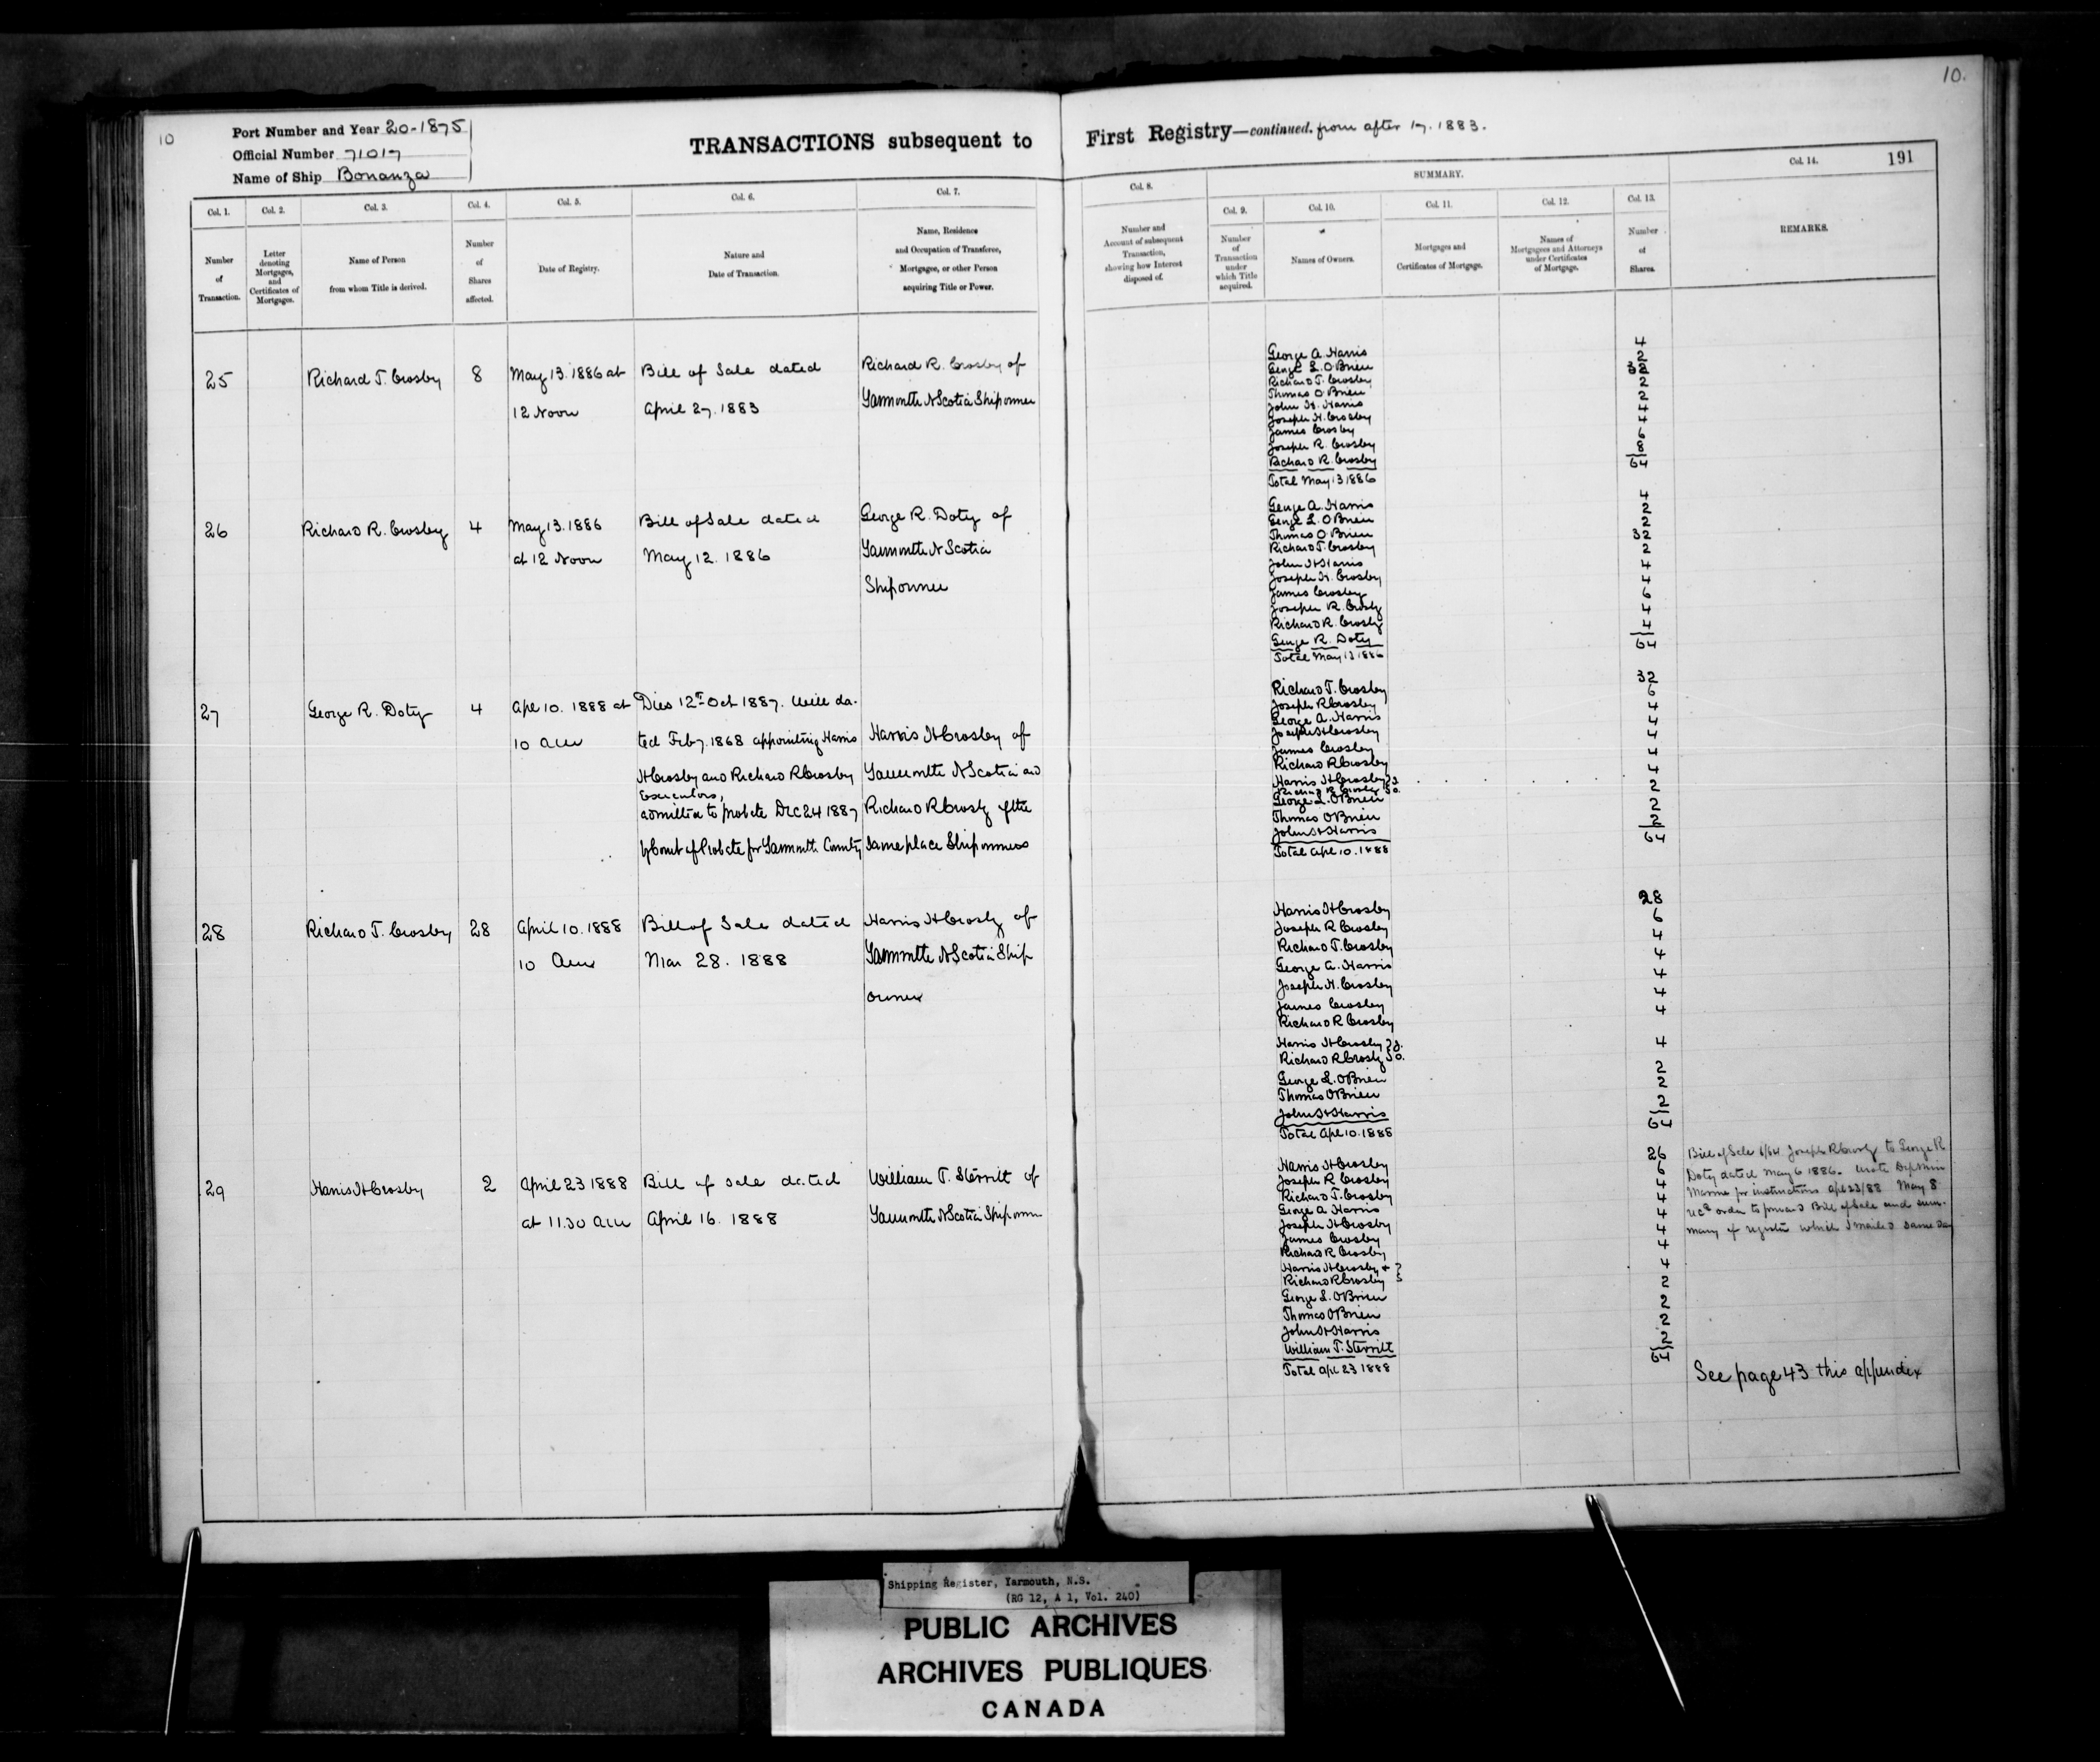 10
Port Number and Year 20-1875
Official Number 71017
Name of Ship Bonanza
TRANSACTIONS subsequent to
Col. 1.
Col. 2.
Col. 3.
Col. 4.
Col. 5.
Col. 6.
Col. 7.
Number of Transaction.
Letter denoting Mortgages, and Certificates of Mortgages.
Name of Person from whom Title is derived.
Number of Shares affected.
Date of Registry.
Nature and Date of Transaction.
Name, Residence and Occupation of Transferee, Mortgagee, or other Person acquiring Title or Power.
25 Richard T. Crosby 8 May 13. 1886 at Bill of Sale dated Richard R. Crosby of
12 Noon April 27. 1883 Yarmouth N Scotia Shipowner
26 Richard R. Crosby 4 May 13. 1886 Bill of Sale dated George R. Doty of
at 12 Noon May 12. 1886 Yarmouth N Scotia
Shipowner
27 George R. Doty 4 Apl 10. 1888 at Died 12th Oct 1887. Will da-
10 am ted Feby. 1868 appointing Harris Harris H Crosby of
H Crosby and Richard R Crosby Yarmouth N Scotia and
Executors,
admitted to probate Dec 24 1887 Richard R Crosby of the
by Court of Probate for Yarmouth County same place Shipowners
28 Richard T. Crosby 28 April 10. 1888 Bill of Sale dated Harris H Crosby of
10 am Mar 28. 1888 Yarmouth N Scotia Ship
owner
29 Harris H Crosby 2 April 23 1888 Bill of Sale dated William T. Sterritt of
at 11.30 am April 16. 1888 Yarmouth N Scotia Shipowner
10.
First Registry—continued. from after 17. 1883.
191
SUMMARY.
Col. 8.
Col. 9.
Col. 10.
Col. 11.
Col. 12.
Col. 13.
Col. 14.
Number and Account of subsequent Transaction, showing how Interest disposed of.
Number of Transaction under which Title acquired.
Names of Owners.
Mortgages and Certificates of Mortgage.
Names of Mortgagees and Attorneys under Certificates of Mortgage.
Number of Shares.
REMARKS.
George A. Harris 4
George L. O'Brien 2
Richard T. Crosby 32
Thomas O'Brien 2
John H. Harris 2
Joseph H. Crosby 4
James Crosby 4
Joseph R. Crosby 6
Richard R. Crosby 8
Total May 13 1886 64
George A. Harris 4
George L. O'Brien 2
Thomas O'Brien 2
Richard T. Crosby 32
John H Harris 2
Joseph H. Crosby 4
James Crosby 4
Joseph R. Crosby 6
Richard R. Crosby 4
George R. Doty 4
Total May 13 1886 64
Richard T. Crosby 32
Joseph R Crosby 6
George A. Harris 4
Joseph H Crosby 4
James Crosby 4
Richard R Crosby 4
Harris H Crosby } J.
Richard R Crosby } O. 4
George L. O'Brien 2
Thomas O'Brien 2
John H Harris 2
Total Apl 10. 1888 64
Harris H Crosby 28
Joseph R Crosby 6
Richard T. Crosby 4
George A. Harris 4
Joseph H. Crosby 4
James Crosby 4
Richard R Crosby 4
Harris H Crosby } J.
Richard R Crosby } O. 4
George L. O'Brien 2
Thomas O'Brien 2
John H Harris 2
Total Apl 10. 1888 64
Harris H Crosby 26
Joseph R Crosby 6
Richard T. Crosby 4
George A. Harris 4
Joseph H Crosby 4
James Crosby 4
Richard R Crosby 4
Harris H Crosby & }
Richard R Crosby } 4
George L. O'Brien 2
Thomas O'Brien 2
John H Harris 2
William T. Sterritt 2
Total Apl 23 1888 64
Bill of Sale 6/64 Joseph R Crosby to George R
Doty dated May 6 1886. Wrote Dep Min
Marine for instructions Apl 23/88 May 8
recd order to forward Bill of Sale and sum-
mary of register which I mailed same day
See page 43 this appendix
Shipping Register, Yarmouth, N.S.
(RG 12, A 1, Vol. 240)
PUBLIC ARCHIVES
ARCHIVES PUBLIQUES
CANADA